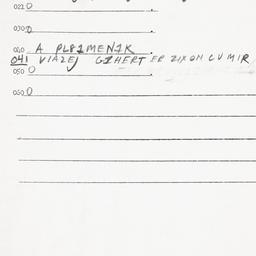 020 0
030 0
040 A PLFIMENIK
041 VIAZEJ GIHERT ER ZIXOH CUMIR
050 0
060 0